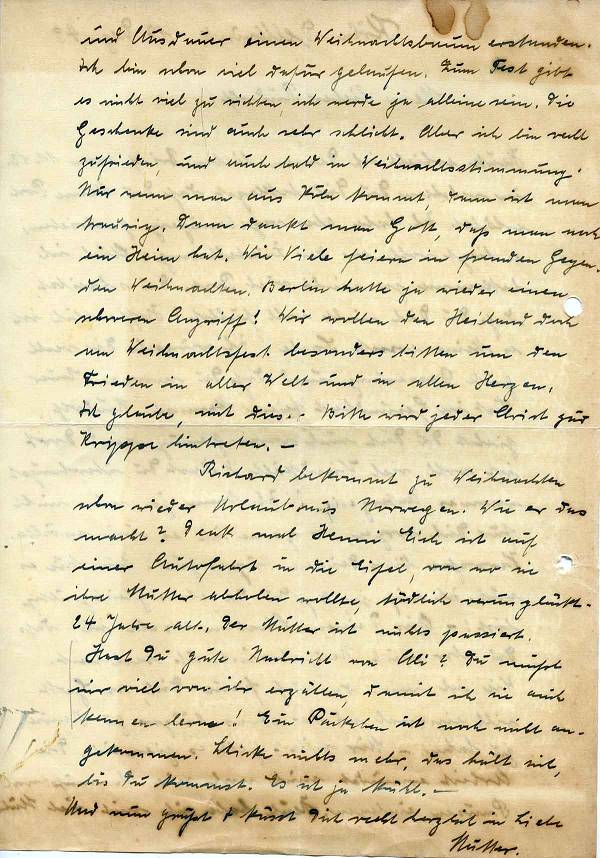 und Ausdauer einen Weihnachtsbaum erstanden.
Ich bin schon viel dafür gelaufen. Zum Fest gibt
es nicht viel zu richten, ich werde ja alleine sein. Die
Geschenke sind auch sehr schlicht. Aber ich bin recht
zufrieden, und auch bald in Weihnachtsstimmung.
Nur wenn man aus Köln kommt, dann ist man
traurig. Dann dankt man Gott, daß man noch
ein Heim hat. Wie Viele feiern in fremden Gegen-
den Weihnachten. Berlin hatte ja wieder einen
schweren Angriff! Wir wollen den Heiland doch
am Weihnachtsfest besonders bitten um den
Frieden in aller Welt und in allen Herzen.
Ich glaube, mit dies.- Bitte wird jeder Christ zur
Krippe hintreten. –
Richard bekommt zu Weihnachten
schon wieder Urlaub aus Norwegen. Wie er das
macht? Denk mal Henni Eich ist auf
einer Autofahrt in die Eifel, von wo sie
ihre Mutter abholen wollte, tödlich verunglückt.-
24 Jahre alt. Der Mutter ist nichts passiert.
Hast Du gute Nachricht von Ali? Du mußt
mir viel von ihr erzählen, damit ich sie auch
kennen lerne! Ein Päckchen ist noch nicht an-
gekommen. Schicke nichts mehr, das hält sich,
bis Du kommst. Es ist ja kühl. –
Und nun grüßt & küsst Dich recht herzlich in Liebe
Mutter.